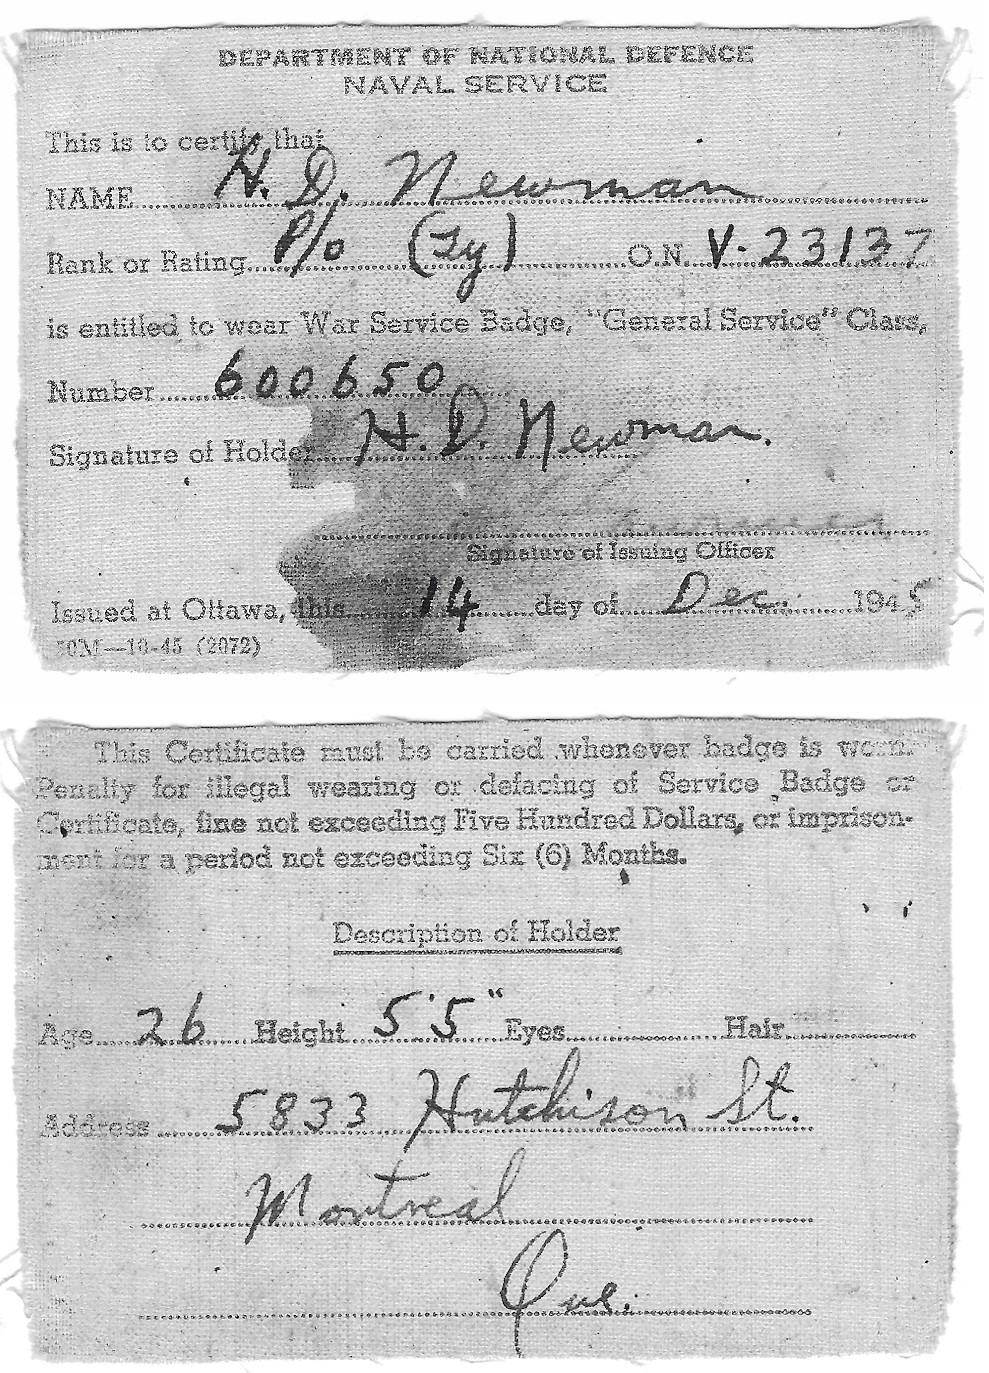 DEPARTMENT OF NATIONAL DEFENCE
NAVAL SERVICE
This is to certify that
NAME H. D. Newman
Rank or Rating P/o (Ty) O.N. V-23137
is entitled to wear War Service Badge, "General Service" Class,
Number 600650
Signature of Holder H. D. Newman.
Signature of Issuing Officer
Issued at Ottawa, this 14 day of Dec. 1945
50M—10-45 (2072)
This Certificate must be carried whenever badge is worn.
Penalty for illegal wearing or defacing of Service Badge or
Certificate, fine not exceeding Five Hundred Dollars, or imprison-
ment for a period not exceeding Six (6) Months.
Description of Holder
Age 26 Height 5'5" Eyes Hair
Address 5833 Hutchison St.
Montreal
Que.